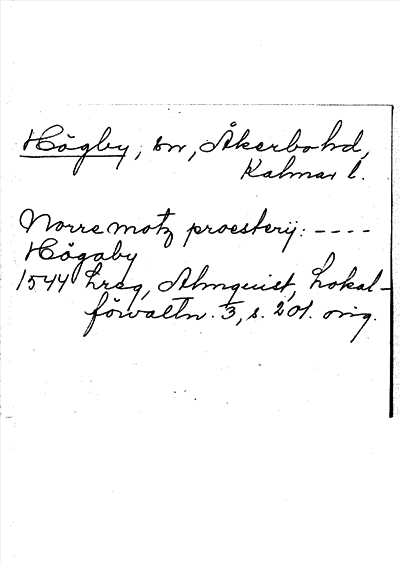 Högby, sn, Åkerbo hd,
Kalmar l.
Norre motz proesterij: ----
Högaby
1544 Lreg, Almquist, Lokal-
förvaltn. 3, s. 201. orig.